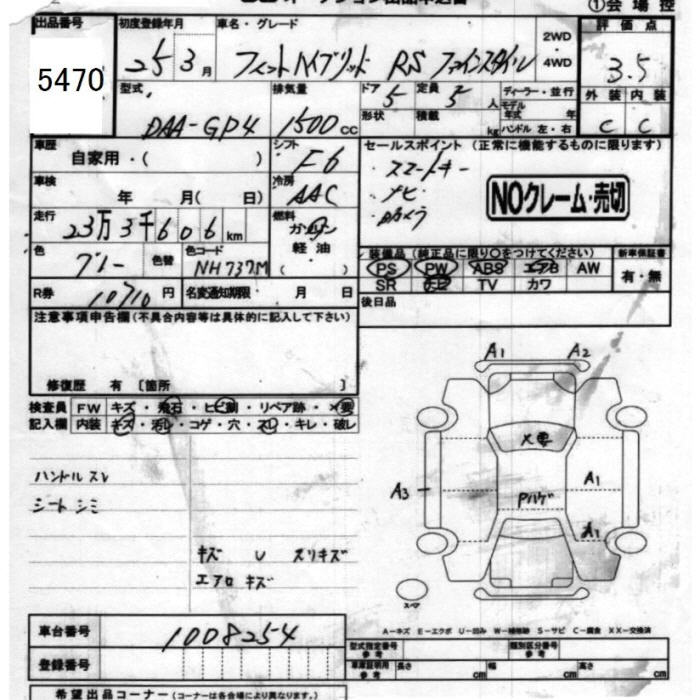 ①会場控
出品番号
5470
初度登録年月
25 3月
車名・グレード
フィットハイブリッド RS ファインスタイル
2WD
・
4WD
評価点
3.5
外装 内装
C C
型式
DAA-GP4
排気量
1500cc
ドア 5
定員 5人
形状
積載 kg
ディーラー・並行
モデル年式 年
ハンドル 左・右
車歴
自家用・( )
シフト
F6
車検
年 月( 日)
冷房
AAC
走行
23万3千606km
燃料
ガソリン
軽油
( )
色
グレー
色替
色コード
NH737M
R券
10710円
名変通知期限 月 日
セールスポイント (正常に機能するものに限ります)
・スマートキー
・ナビ
NOクレーム・売切
装備品(純正品に限り○をつけてください)
PS PW ABS エアB AW
SR ナビ TV カワ
新車保証書
有・無
後日品
注意事項申告欄(不具合内容等は具体的に記入して下さい)
修復歴 有〔箇所 〕
検査員 FW キズ・飛石・ヒビ割・リペア跡・×要
記入欄 内装 キズ・汚れ・コゲ・穴・スレ・キレ・破レ
ハンドル スレ
シート シミ
キズ U スリキズ
エアロ キズ
A1 A2
X要
A3
A1
A1
スペア
A-キズ E-エクボ U-凹み W-補修跡 S-サビ C-腐食 XX-交換済
車台番号
1008254
登録番号
型式指定番号
参考
類別区分番号
参考
車庫証明用
参考
長さ cm 幅 cm 高さ cm
希望出品コーナー(コーナーは各会場により異なります。)